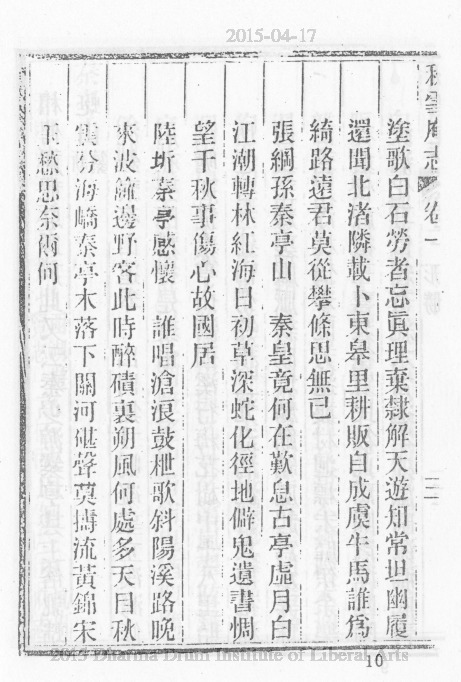 2015-04-17
秋雪庵志 卷一 三
塗歌白石勞者忘眞理棄隷解天遊知常坦幽履
還聞北渚隣載卜東皋里耕販自成虞牛馬誰爲
綺路遠君莫從攀條思無已
張綱孫秦亭山 秦皇竟何在歎息古亭虛月白
江潮轉林紅海日初草深蛇化徑地僻鬼遺書惆
望千秋事傷心故國居
陸圻秦亭感懷 誰唱滄浪鼓枻歌斜陽溪路晚
來波籬邊野客此時醉磧裏朔風何處多天目秋
雲分海嶠秦亭木落下關河碪聲莫擣流黃錦宋
玉愁思奈爾何
2015 Dharma Drum Institute of Liberal Arts
10